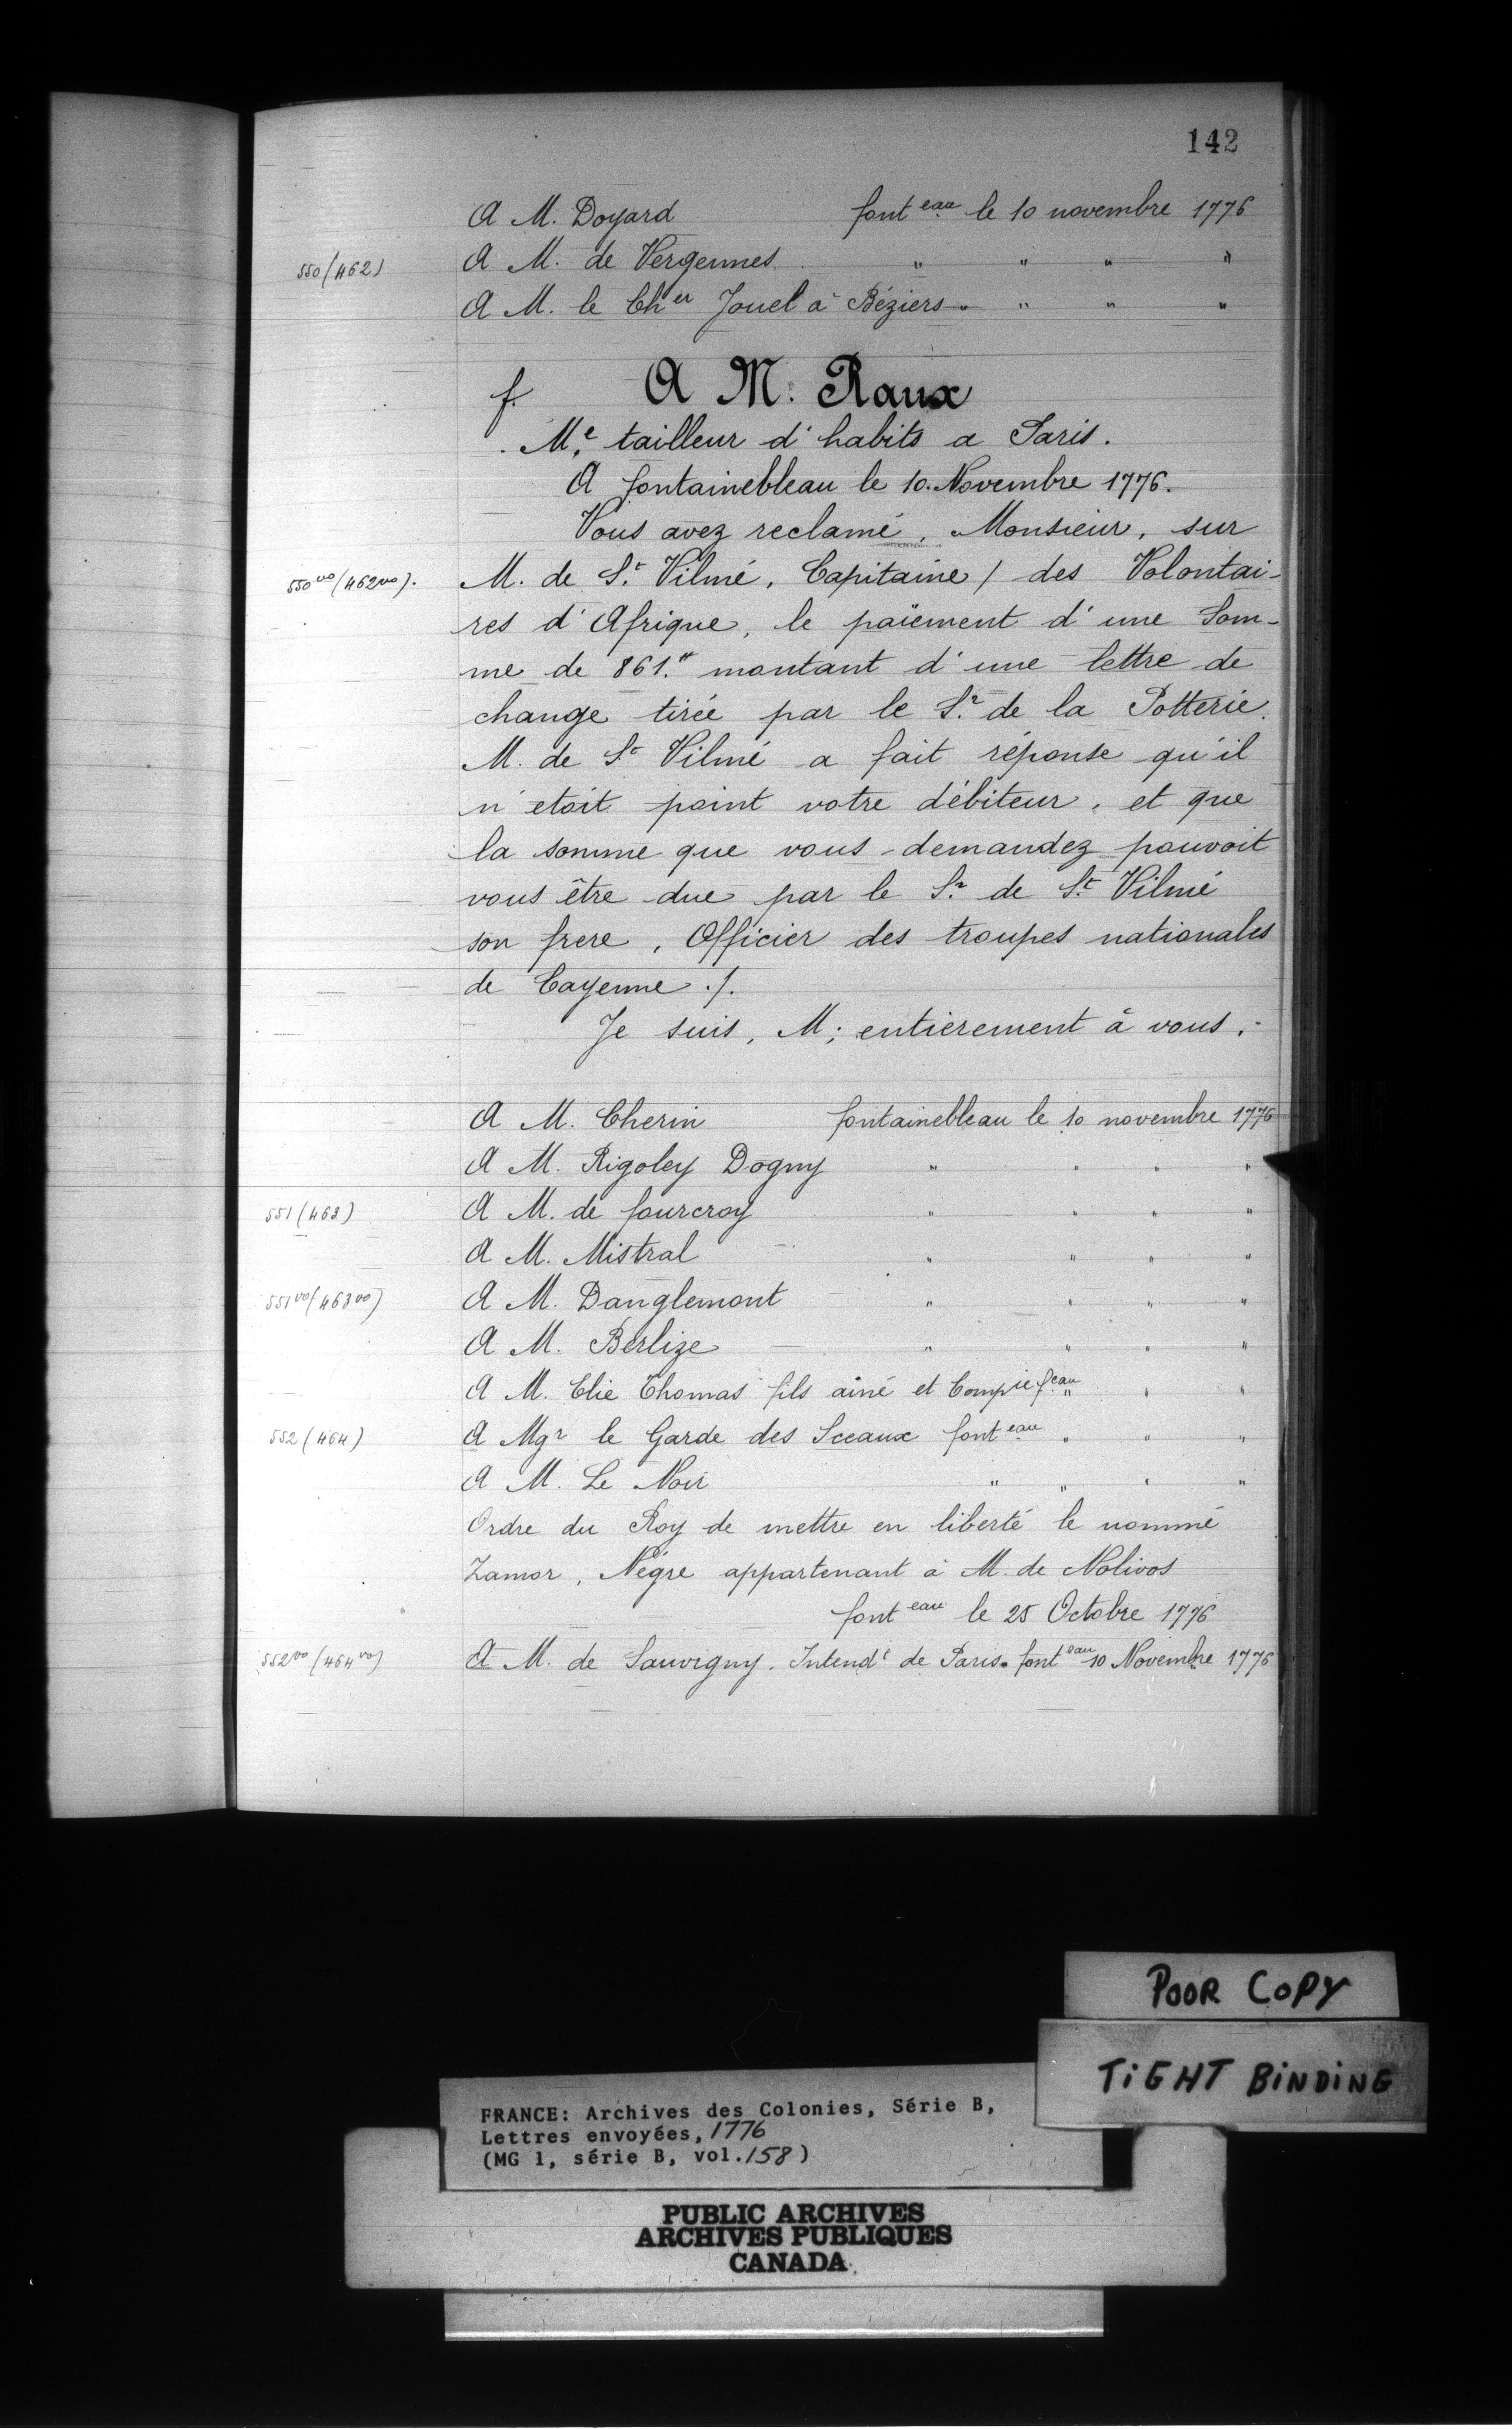 142
A M. Doyard font eau le 10 novembre 1776
550 (462) A M. de Vergennes " " " "
A M. le Cher Jouel à Béziers " " " "
f. A M. Raux
Me tailleur d'habits a Paris.
A fontainebleau le 10. Novembre 1776.
Vous avez reclamé, Monsieur, sur
550 vo (462 vo). M. de St Vilmé, Capitaine / des Volontai-
res d'Afrique, le païement d'une Som-
me de 861.tt montant d'une lettre de
change tirée par le Sr de la Potterie.
M. de St Vilmé a fait réponse qu'il
n'etoit point votre débiteur, et que
la somme que vous demandez pouvoit
vous être due par le Sr de St Vilmé
son frere, Officier des troupes nationales
de Cayenne ./.
Je suis, M; entierement à vous.-
A M. Cherin fontainebleau le 10 novembre 1776
A M. Rigoley Dogny " " " "
551 (463) A M. de fourcroy " " " "
A M. Mistral " " " "
551 vo (463 vo) A M. Danglemont " " " "
A M. Berlize " " " "
A M. Elie Thomas fils ainé et Compie feau " " "
552 (464) A Mgr le Garde des Sceaux font eau " " "
A M. Le Noir " " " "
Ordre du Roy de mettre en liberté le nommé
Zamor, Négre appartenant à M. de Nolivos
font eau le 25 Octobre 1776
552 vo (464 vo) A M. de Sauvigny. Intendt de Paris. font eau 10 Novembre 1776
POOR COPY
TIGHT BINDING
FRANCE: Archives des Colonies, Série B,
Lettres envoyées, 1776
(MG 1, série B, vol. 158)
PUBLIC ARCHIVES
ARCHIVES PUBLIQUES
CANADA